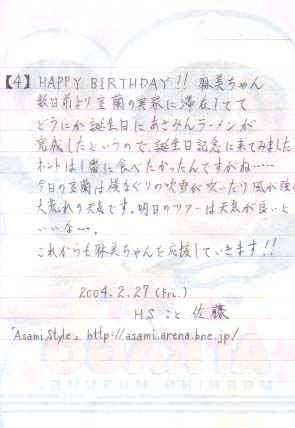 【4】HAPPY BIRTHDAY!! 麻美ちゃん
数日前より室蘭の実家に滞在してて
どうにか誕生日にあさみんラーメンが
完成したというので、誕生日記念に来てみました
ホントは1番に食べたかったんですがね……
今日の室蘭は横なぐりの吹雪が吹いたり風が強く
大荒れの天気です。明日のツアーは天気が良いと
いいな…。
これからも麻美ちゃんを応援していきます!!
2004.2.27(Fri.)
HSこと佐藤
「Asami,Style」 http://asami.arena.bne.jp/
AI KAGO
MORNING MUSUME.